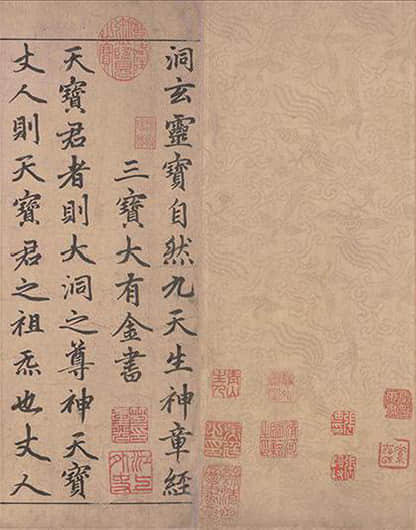 洞玄靈寶自然九天生神章經
三寶大有金書
天寶君者則大洞之尊神天寶
丈人則天寶君之祖炁也丈人